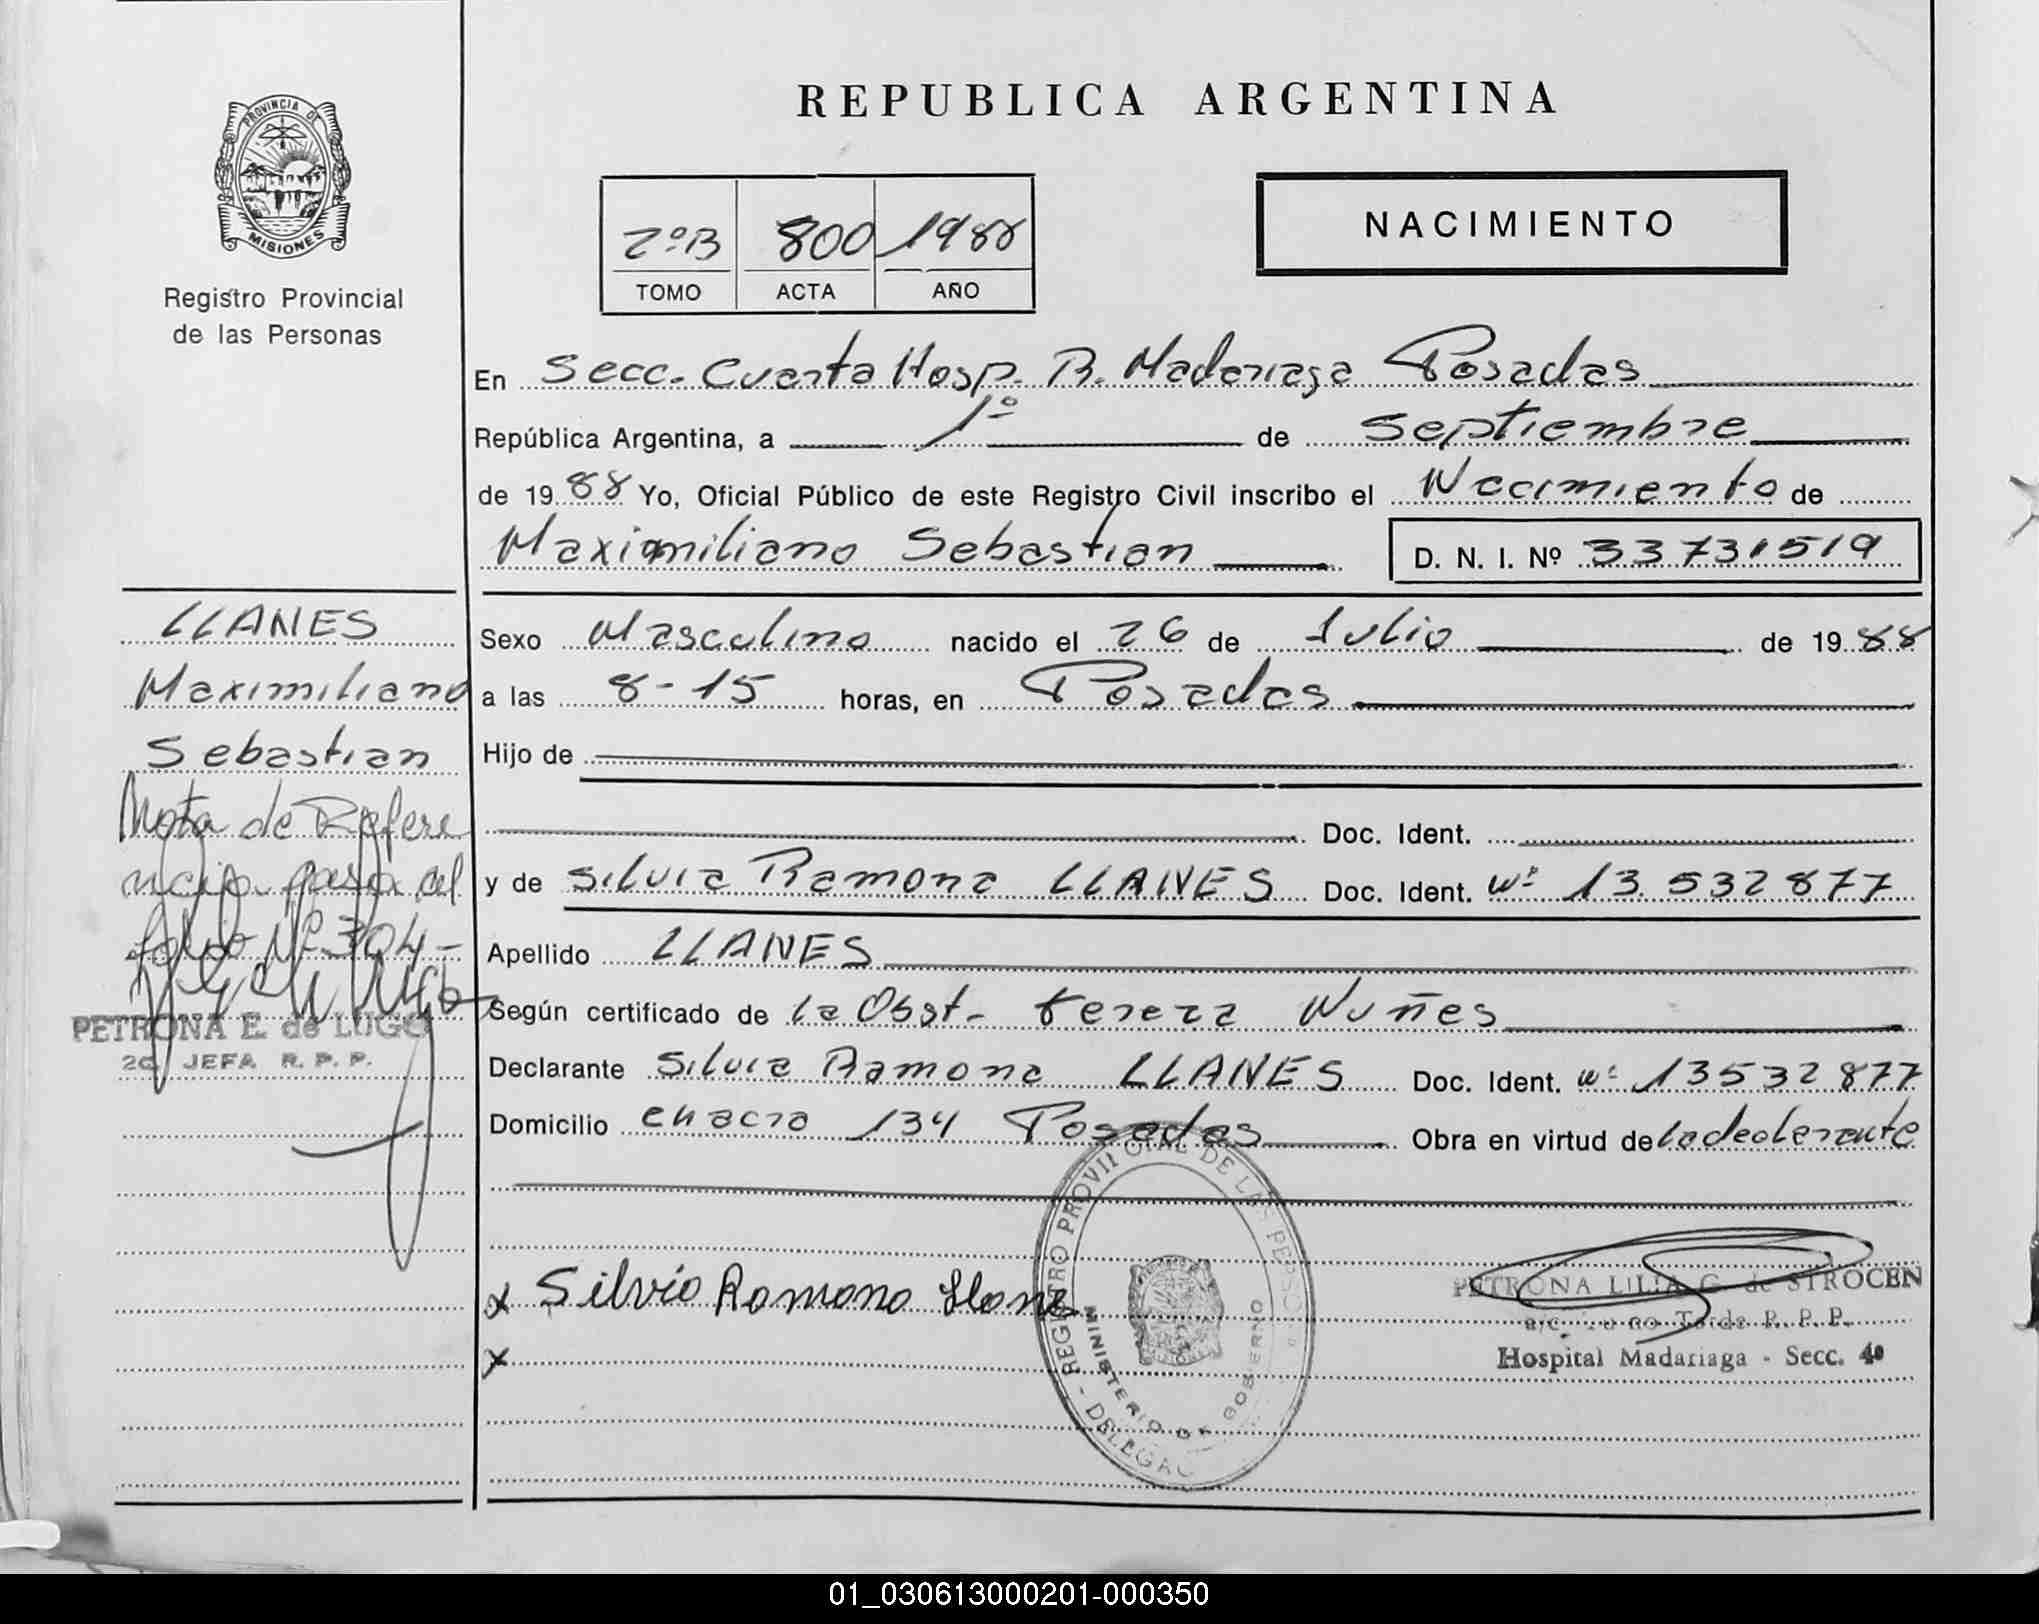 REPUBLICA ARGENTINA
PROVINCIA DE
MISIONES
Registro Provincial
de las Personas
2º B 800 1988
TOMO ACTA AÑO
NACIMIENTO
En Secc. Cuarta Hosp. R. Madariaga Posadas
República Argentina, a 1º de Septiembre
de 1988 Yo, Oficial Público de este Registro Civil inscribo el Nacimiento de
Maximiliano Sebastian D. N. I. Nº 33731519
LLANES
Maximiliano
Sebastian
Nota de Refere
ncia para el
folio Nº 304-
PETRONA E. de LUGO
2a. JEFA R. P. P.
Sexo Masculino nacido el 26 de Julio de 1988
a las 8-15 horas, en Posadas
Hijo de
Doc. Ident.
y de Silvia Ramona LLANES Doc. Ident. Nº 13.532877
Apellido LLANES
Según certificado de la Obst- tereza Nuñes
Declarante Silvia Ramona LLANES Doc. Ident. Nº 13532877
Domicilio chacra 134 Posadas Obra en virtud de la declarante
x Silvia Ramona Llanes
x
REGISTRO PROVINCIAL DE LAS PERSO
MINISTERIO DE GOBIERNO
- DELEGAC
PETRONA LILIA G. de STROCEN
R. P. P.
Hospital Madariaga - Secc. 4a
01_030613000201-000350